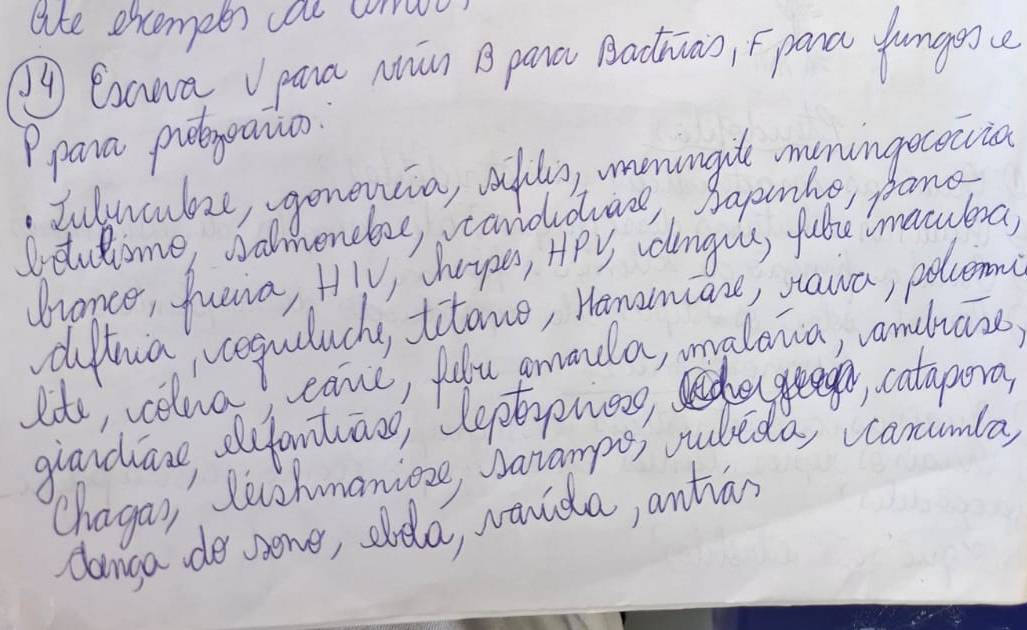 cite exemplos de
14 Escreva V para vírus B para Bactérias, F para fungos e
P para protozoários.
• Tuberculose, gonorréia, sífilis, meningite meningocócica
botulismo, salmonelose, candidíase, sapinho, pano-
branco, frieira, HIV, herpes, HPV, dengue, febre maculosa,
difteria, coqueluche, tétano, Hanseníase, raiva, poliomie
lite, cólera, cárie, febre amarela, malária, amebíase,
giardíase, elefantíase, leptospirose, catapora,
Chagas, leishmaniose, sarampo, rubéola, caxumba,
doença do sono, ebola, varíola, antrás